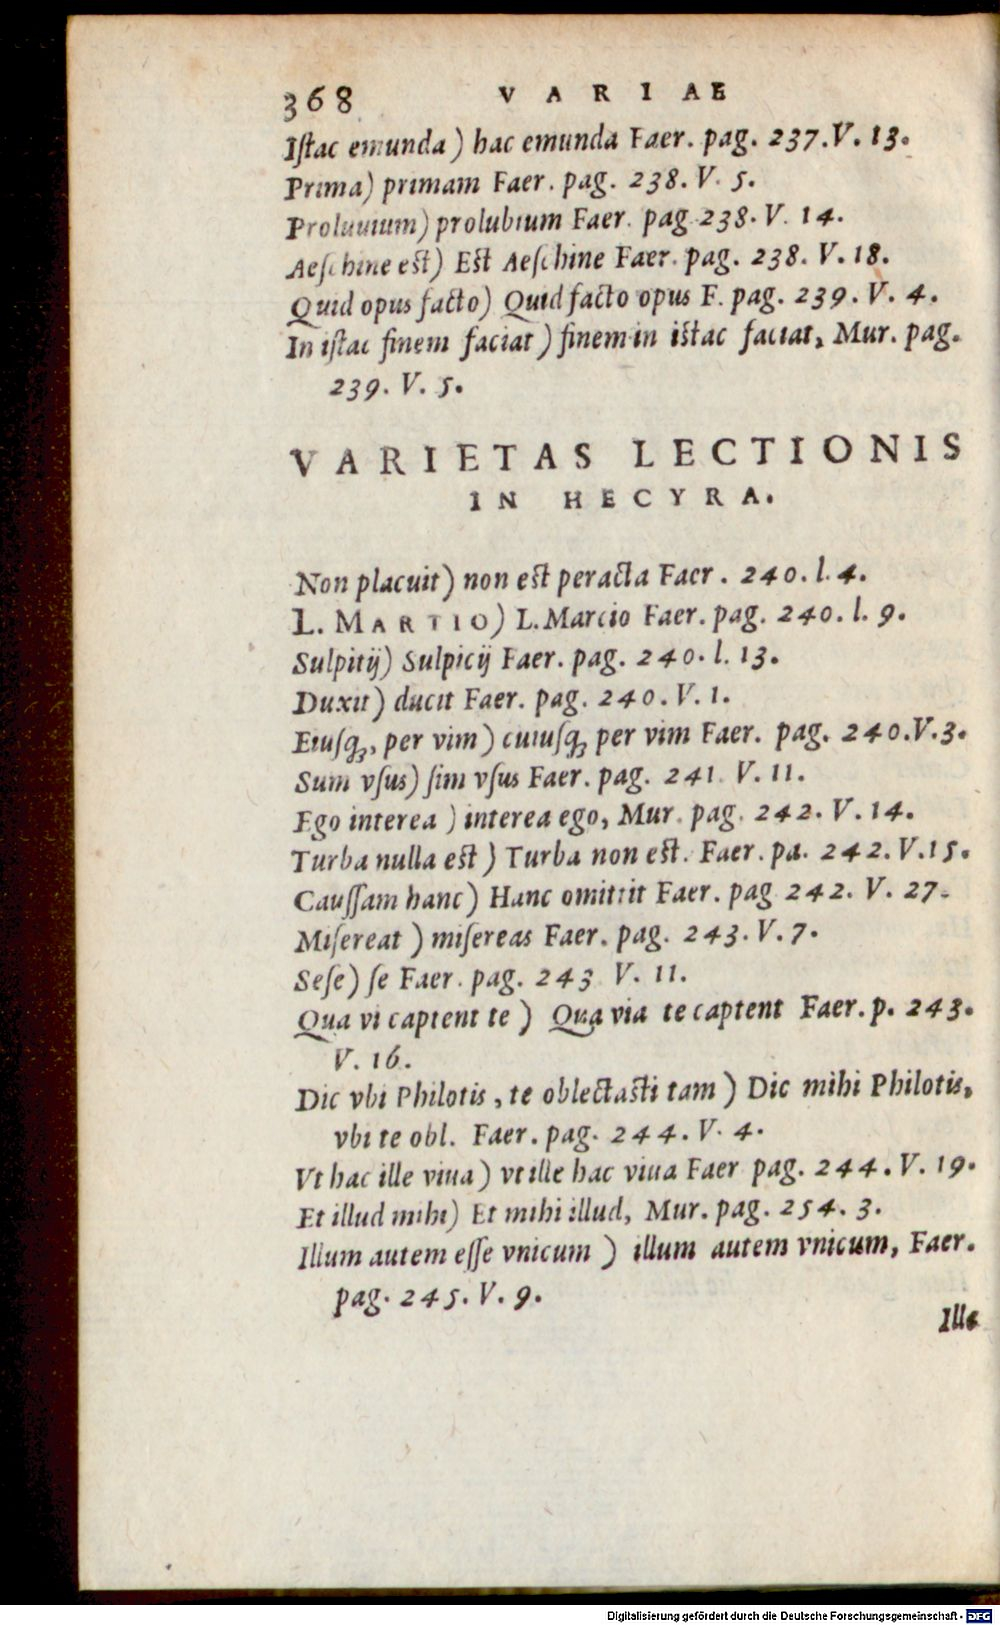 368 VARIAE
Iſtac emunda) hac emunda Faer. pag. 237.V. 13.
Prima) primam Faer. pag. 238. V. 5.
Proluuium) prolubium Faer. pag. 238. V. 14.
Aeſchine est) Est Aeſchine Faer. pag. 238. V. 18.
Quid opus facto) Quid facto opus F. pag. 239. V. 4.
In iſtac finem faciat) finem in istac faciat, Mur. pag.
239. V. 5.
VARIETAS LECTIONIS
IN HECYRA.
Non placuit) non est peracta Faer. 240. l. 4.
L. MARTIO) L. Marcio Faer. pag. 240. l. 9.
Sulpitij) Sulpicij Faer. pag. 240. l. 13.
Duxit) ducit Faer. pag. 240. V. 1.
Eiuſq́;, per vim) cuiuſq́; per vim Faer. pag. 240.V.3.
Sum vſus) ſim vſus Faer. pag. 241. V. 11.
Ego interea) interea ego, Mur. pag. 242. V. 14.
Turba nulla est) Turba non est. Faer. pa. 242. V.15.
Cauſſam hanc) Hanc omittit Faer. pag. 242. V. 27.
Miſereat) miſereas Faer. pag. 243. V. 7.
Seſe) ſe Faer. pag. 243. V. 11.
Qua vi captent te) Qua via te captent Faer. p. 243.
V. 16.
Dic vbi Philotis, te oblectasti tam) Dic mihi Philotis,
vbi te obl. Faer. pag. 244. V. 4.
Vt hac ille viua) vt ille hac viua Faer pag. 244. V. 19.
Et illud mihi) Et mihi illud, Mur. pag. 254. 3.
Illum autem eſſe vnicum) illum autem vnicum, Faer.
pag. 245. V. 9.
Ille
Digitalisierung gefördert durch die Deutsche Forschungsgemeinschaft - DFG